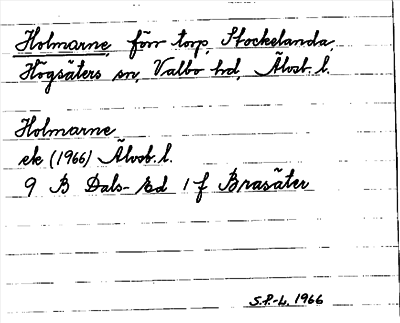 Holmarne, förr torp, Stockelanda,
Högsäters sn, Valbo hd, Älvsb. l.
Holmarne
ek (1966) Älvsb. l.
9 B Dals-Ed 1 f Brasäter
S.P.-L. 1966